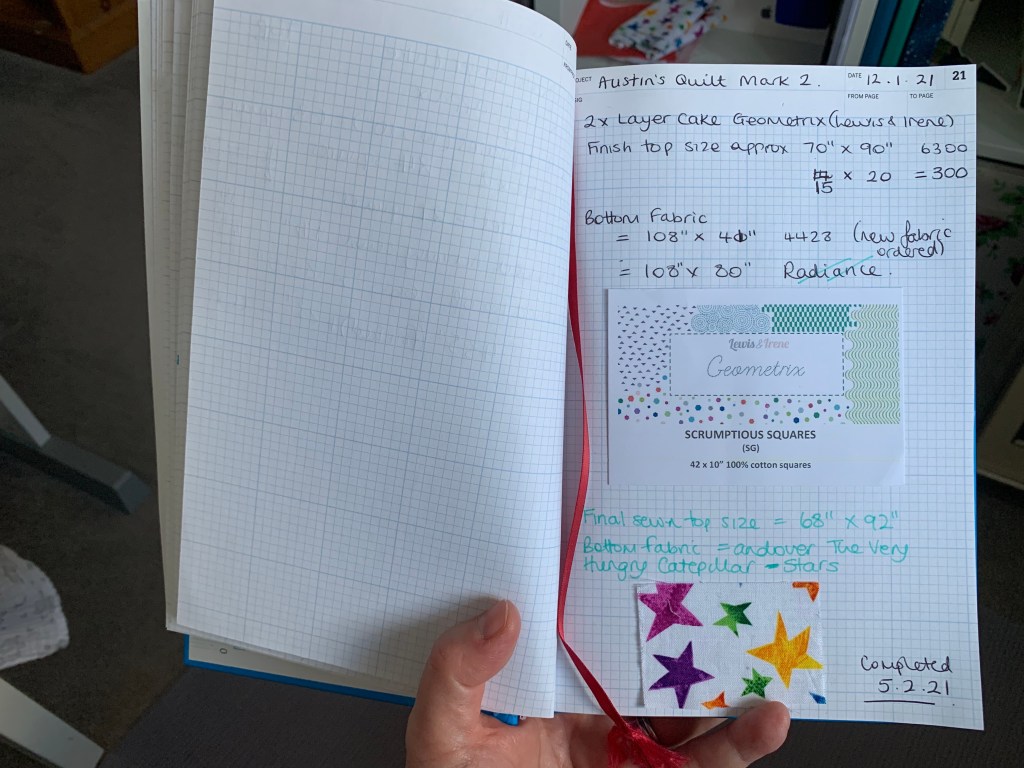 PROJECT Austin's Quilt Mark 2. DATE 12.1.21 21
FROM PAGE TO PAGE
2x Layer Cake Geometrix (Lewis & Irene)
Finish top size approx 70" x 90" 6300
15 x 20 = 300
Bottom Fabric
= 108" x 40" 4428 (new fabric
ordered)
= 108" x 80" Radiance.
Lewis & Irene
Geometrix
SCRUMPTIOUS SQUARES
(SG)
42 x 10" 100% cotton squares
Final sewn top size = 68" x 92"
Bottom fabric = andover The Very
Hungry Catepillar - Stars
Completed
5.2.21